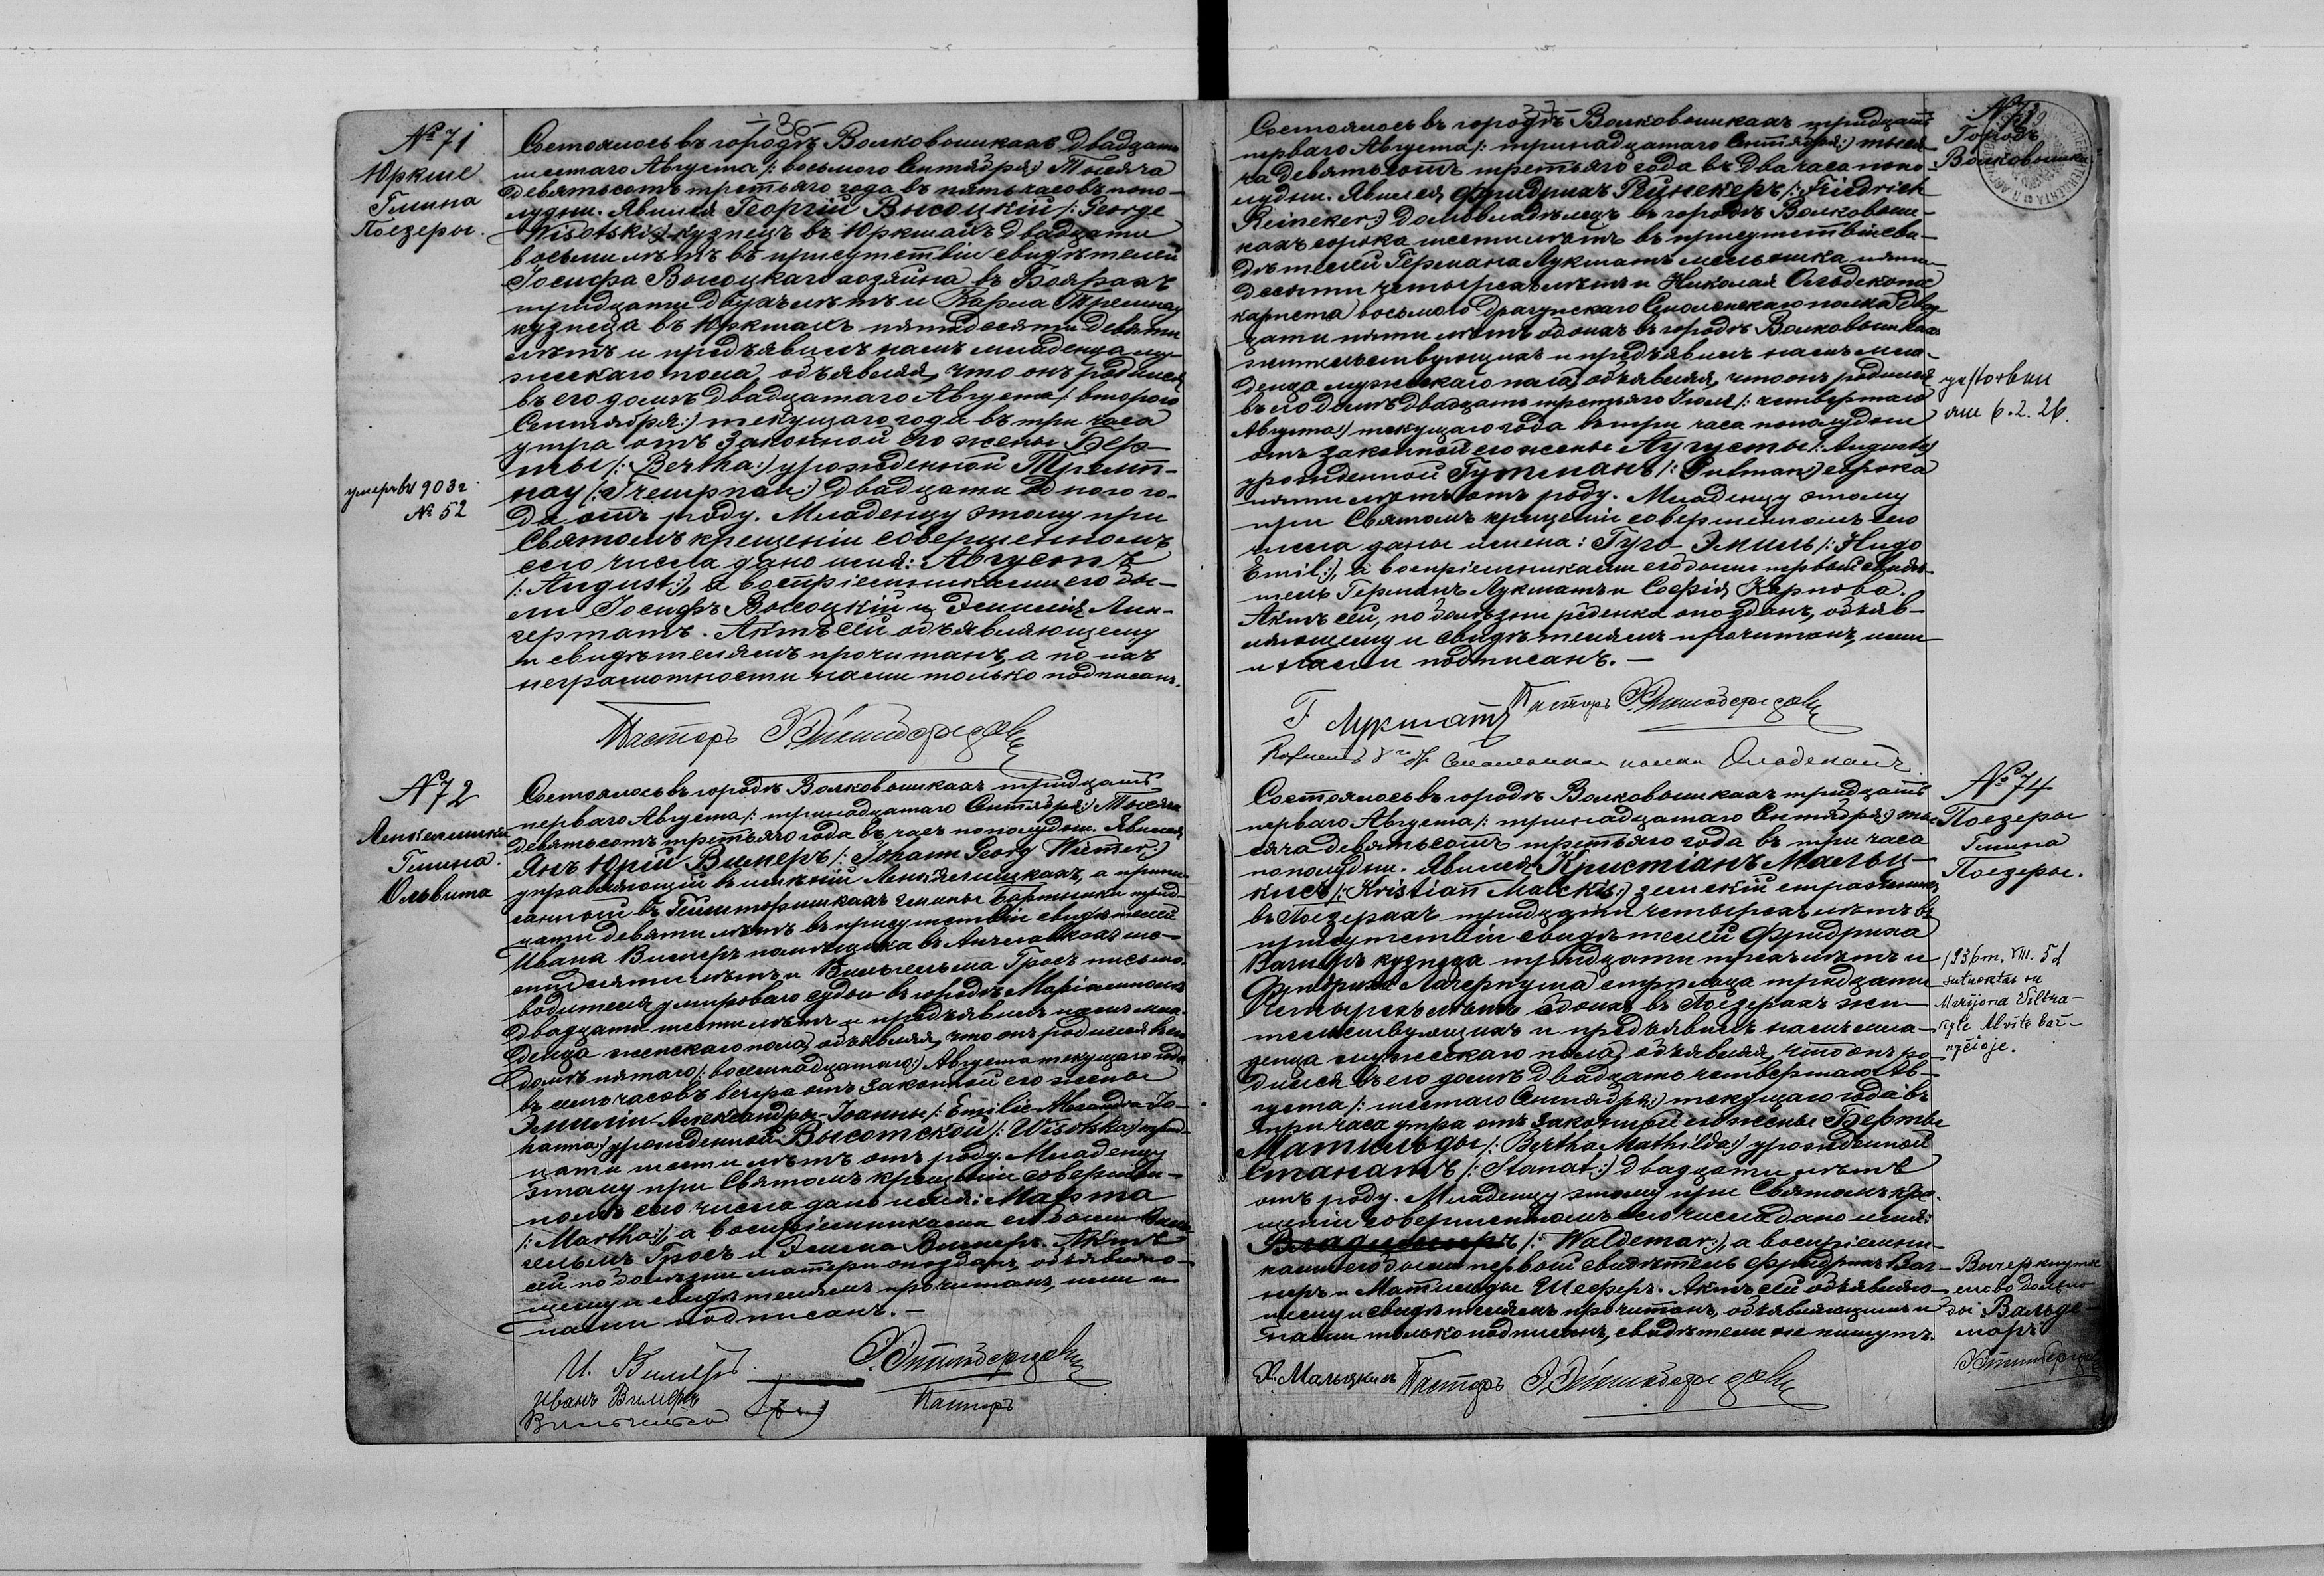 - 36 -
№ 71
Юркше
Гмина
Поезеры.
умеръ въ 1903 г.
№ 52
Состоялось въ городѣ Волковышкахъ двадцать
шестаго Августа /: восьмого Сентября:/ Тысяча
девятьсотъ третьяго года въ пять часовъ попо-
лудни. Явился Георгій Высоцкій /: George
Wisotski:/ кузнецъ въ Юркшахъ двадцати
восьми лѣтъ въ присутствіи свидѣтелей
Іосифа Высоцкаго хозяина въ Боярахъ
тридцати двухъ лѣтъ и Карла Тремпнау
кузнеца въ Юркшахъ пятидесяти девяти
лѣтъ и предъявилъ намъ младенца му-
жескаго пола, объявляя, что онъ родился
въ его домѣ двадцатаго Августа /: второго
Сентября:/ текущаго года въ три часа
утра отъ законной его жены Бер-
ты /: Bertha:/ урожденной Тремп-
нау /: Trempnau:/ двадцати одного го-
да отъ роду. Младенцу этому при
Святомъ крещеніи совершенномъ
сего числа дано имя: Августъ
/: August:/, а воспріемниками его бы-
ли Іосифъ Высоцкій и Эмилія Лин-
гертатъ. Актъ сей объявляющему
и свидѣтелямъ прочитанъ, а по ихъ
неграмотности нами только подписанъ.
Пасторъ
№ 72
Гмина
Ольвита
Состоялось въ городѣ Волковышкахъ тридцать
перваго Августа /: тринадцатаго Сентября:/ Тысяча
девятьсотъ третьяго года въ часъ пополудни. Явился
Янъ Юрій Вимеръ /: Johann Georg Wiemer:/
управляющій въ имѣніи а припи-
санный въ гмины Бартники трид-
цати девяти лѣтъ въ присутствіи свидѣтелей
Ивана Вимеръ помѣщика въ ше-
стидесяти лѣтъ и Вильгельма Гросъ письмо-
водителя у мироваго судьи въ городѣ Маріамполѣ
двадцати шести лѣтъ и предъявилъ намъ мла-
денца женскаго пола, объявляя, что онъ родился въ его
домѣ пятаго /: восемнадцатаго:/ Августа текущаго года
въ семь часовъ вечера отъ законной его жены
Эмиліи-Александры-Іоанны /: Emilie Alexandra Jo-
hanna:/ урожденной Высотской /: Wisotska:/ трид-
цати шести лѣтъ отъ роду. Младенцу
этому при Святомъ крещеніи совершен-
номъ сего числа дано имя: Марта
/: Martha:/, а воспріемниками его были Виль-
гельмъ Гросъ и Вимеръ. Актъ
сей по болѣзни матери опозданъ, объявляю-
щему и свидѣтелямъ прочитанъ, ими и
нами подписанъ. -
И. Вимеръ.
Иванъ Вимеръ
Пасторъ
- 37 -
№ 73
Городъ
Волковышки
gestorben
am 6.2.26.
Состоялось въ городѣ Волковышкахъ тридцать
перваго Августа /: тринадцатаго Сентября:/ тыся-
ча девятьсотъ третьяго года въ два часа попо-
лудни. Явился Фридрихъ Рейнекеръ /: Friedrich
Reineker:/ домовладѣлецъ въ городѣ Волковыш-
кахъ сорока шести лѣтъ въ присутствіи сви-
дѣтелей Германа Лукшатъ мельника пяти-
десяти четырехъ лѣтъ и Николая
корнета восьмого драгунскаго Смоленскаго полка два-
дцати пяти лѣтъ обоихъ въ городѣ Волковышкахъ
жительствующихъ и предъявилъ намъ мла-
денца мужескаго пола, объявляя, что онъ родился
въ его домѣ двадцать третьяго Іюля /: четвертаго
Августа:/ текущаго года въ три часа пополудни
отъ законной его жены Августы /: Augusta:/
урожденной Гутманъ /: Gutman:/ сорока
пяти лѣтъ отъ роду. Младенцу этому
при Святомъ крещеніи совершенномъ сего
числа даны имена: Гуго-Эмиль /: Hugo
Emil:/, а воспріемниками его были первый свидѣ-
тель Германъ Лукшатъ и Софія Карпова.
Актъ сей, по болѣзни ребенка опозданъ, объяв-
ляющему и свидѣтелямъ прочитанъ, ими
и нами подписанъ. -
Г. Лукшатъ Пасторъ
№ 74
Поезеры
Гмина
Поезеры.
Состоялось въ городѣ Волковышкахъ тридцать
перваго Августа /: тринадцатаго Сентября:/ ты-
сяча девятьсотъ третьяго года въ три часа
пополудни. Явился Христіанъ Мальц-
кисъ /: Kristian Malckis:/ земскій стражникъ
въ Поезерахъ тридцати четырехъ лѣтъ въ
присутствіи свидѣтелей Фридриха
Вагнеръ кузнеца тридцати трехъ лѣтъ и
Фридриха Лагерпуша стрѣльца тридцати
четырехъ лѣтъ обоихъ въ Поезерахъ жи-
тельствующихъ и предъявилъ намъ мла-
денца мужескаго пола, объявляя, что онъ ро-
дился въ его домѣ двадцать четвертаго Ав-
густа /: шестаго Сентября:/ текущаго года въ
три часа утра отъ законной его жены Берты
Матильды /: Bertha Mathilda:/ урожденной
Станатъ /: Stanat:/ двадцати лѣтъ
отъ роду. Младенцу этому при Святомъ кре-
щеніи совершенномъ сего числа дано имя:
Владиміръ /: Waldemar:/, а воспріемни-
ками его были первый свидѣтель Фридрихъ Ваг-
неръ и Матильда Шеферъ. Актъ сей объявляю-
щему и свидѣтелямъ прочитанъ, объявляющимъ и
нами только подписанъ, свидѣтели не пишутъ.
Х. Мальцкисъ Пасторъ
1936 m. VIII. 5 d
sutuoktas su
Marijona Viltra-
Alvite baž-
nyčioje.
Вычеркнутое
слово должно
быть Вальде-
маръ